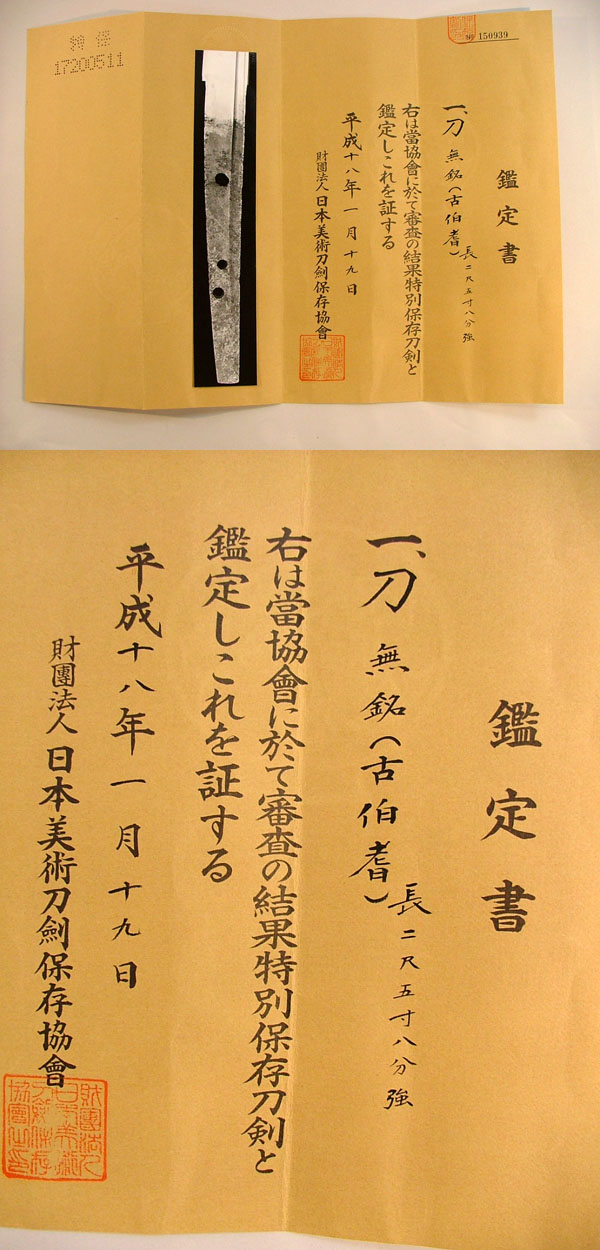 特保
17200511
№ 150939
鑑定書
一、刀 無銘(古伯耆)
長二尺五寸八分強
右は當協會に於て審査の結果特別保存刀剣と
鑑定しこれを証する
平成十八年一月十九日
財團法人日本美術刀劍保存協會
鑑定書
一、刀 無銘(古伯耆)
長二尺五寸八分強
右は當協會に於て審査の結果特別保存刀剣と
鑑定しこれを証する
平成十八年一月十九日
財團法人日本美術刀劍保存協會